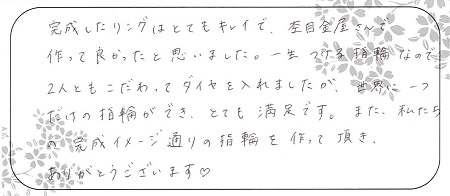 完成したリングはとてもキレイで、杢目金屋さんで
作って良かったと思いました。一生つける指輪なので
2人ともこだわってダイヤを入れましたが、世界に一つ
だけの指輪ができ、とても満足です。また、私たち
の完成イメージ通りの指輪を作って頂き、
ありがとうございます♡